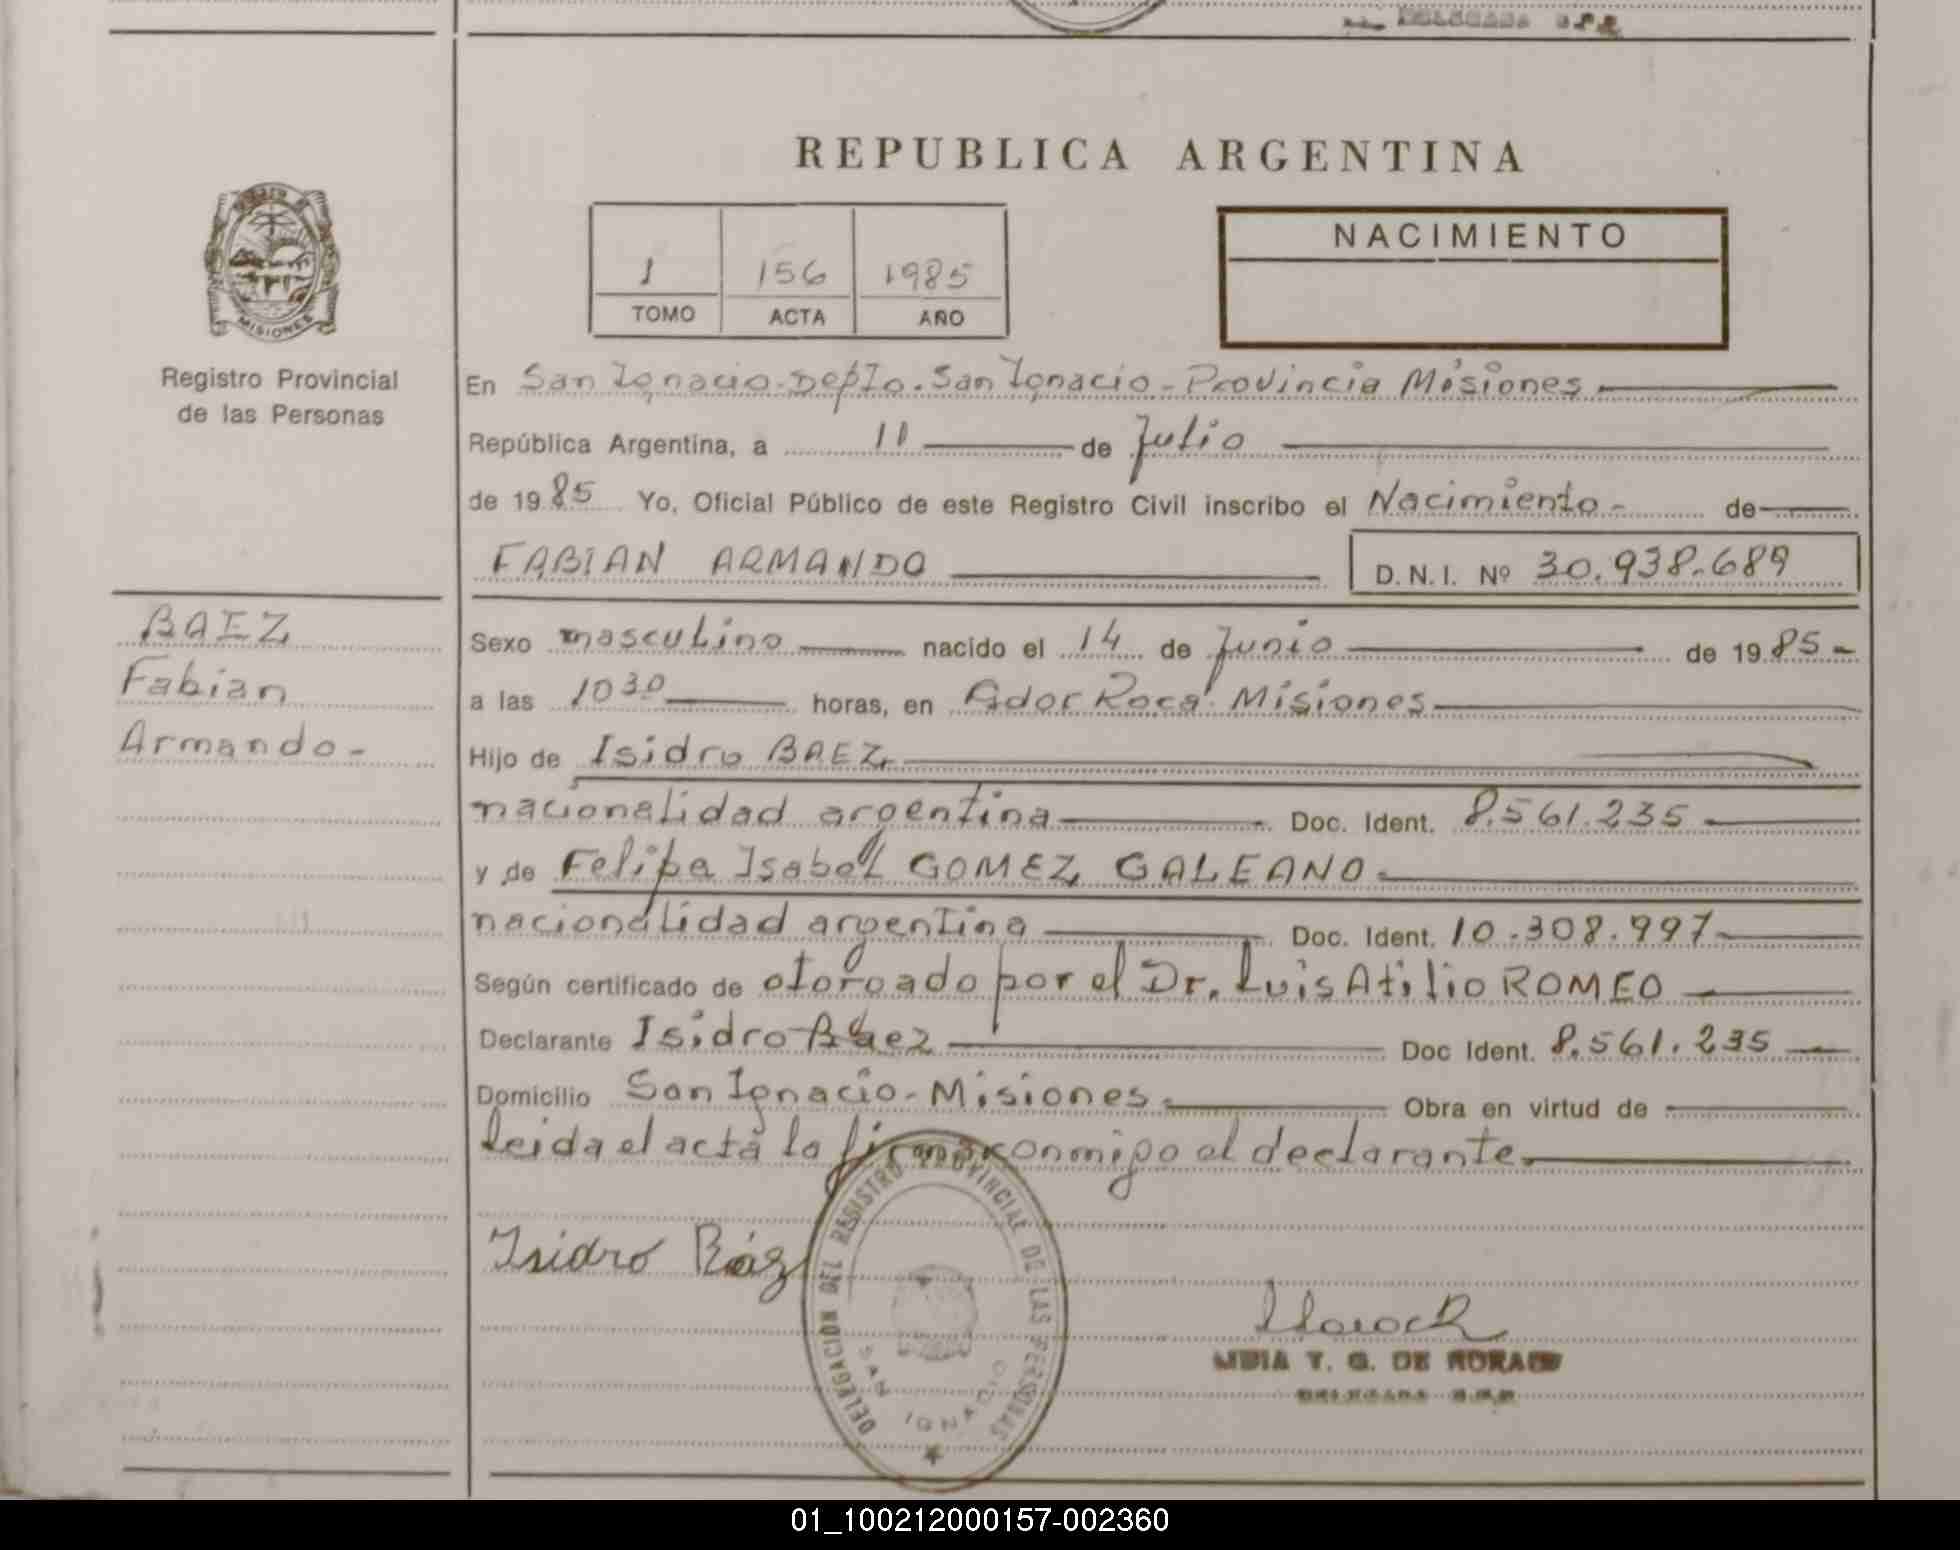 DELEGADA R.P.P.
REPUBLICA ARGENTINA
MISIONES
Registro Provincial
de las Personas
1 156 1985
TOMO ACTA AÑO
NACIMIENTO
En San Ignacio-Depto.San Ignacio-Provincia Misiones
República Argentina, a 11 de Julio
de 1985 Yo, Oficial Público de este Registro Civil inscribo el Nacimiento- de
FABIAN ARMANDO D.N.I. Nº 30.938.689
BAEZ
Fabian
Armando-
Sexo masculino nacido el 14 de Junio de 1985-
a las 10 30 horas, en Ador Roca Misiones
Hijo de Isidro BAEZ
nacionalidad argentina Doc. Ident. 8.561.235
y de Felipa Isabel GOMEZ GALEANO
nacionalidad argentina Doc. Ident. 10.308.997
Según certificado de otorgado por el Dr. Luis Atilio ROMEO
Declarante Isidro Báez Doc Ident. 8.561.235
Domicilio San Ignacio-Misiones. Obra en virtud de
leida el acta la firma conmigo el declarante.
Isidro Báez
DELEGACION DEL REGISTRO PROVINCIAL DE LAS PERSONAS
SAN IGNACIO
T. G. DE
DELEGADA R.P.P.
01_100212000157-002360